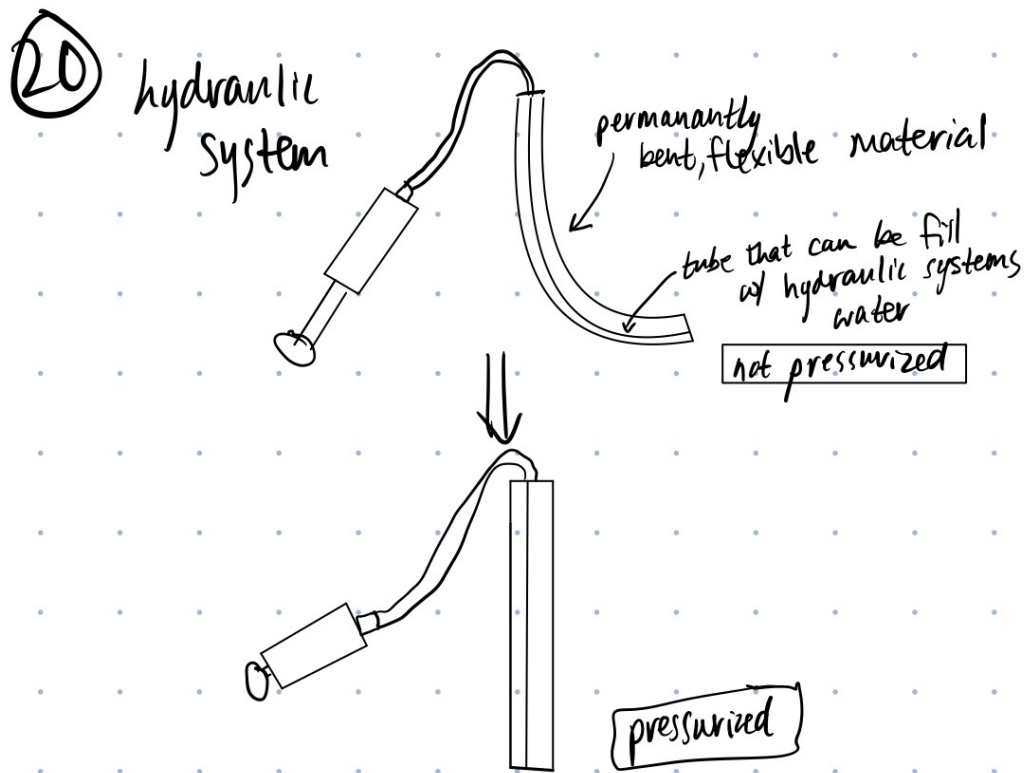 20
hydraulic
system
permanantly
bent, flexible material
tube that can be fill
w/ hydraulic systems
water
not pressurized
pressurized